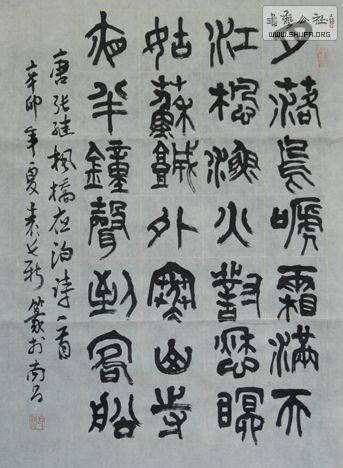 月落烏嗁霜滿天
江楓漁火對愁眠
姑蘇城外寒山寺
夜半鐘聲到客船
唐张继枫橋夜泊诗一首
辛卯年夏袁新篆於南昌
書藝公社
WWW.SHUFA.ORG